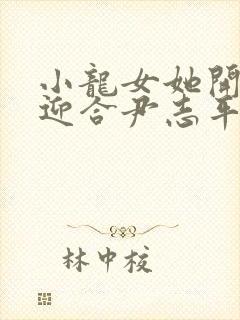 小龍女她開
迎合尹志平
林中校